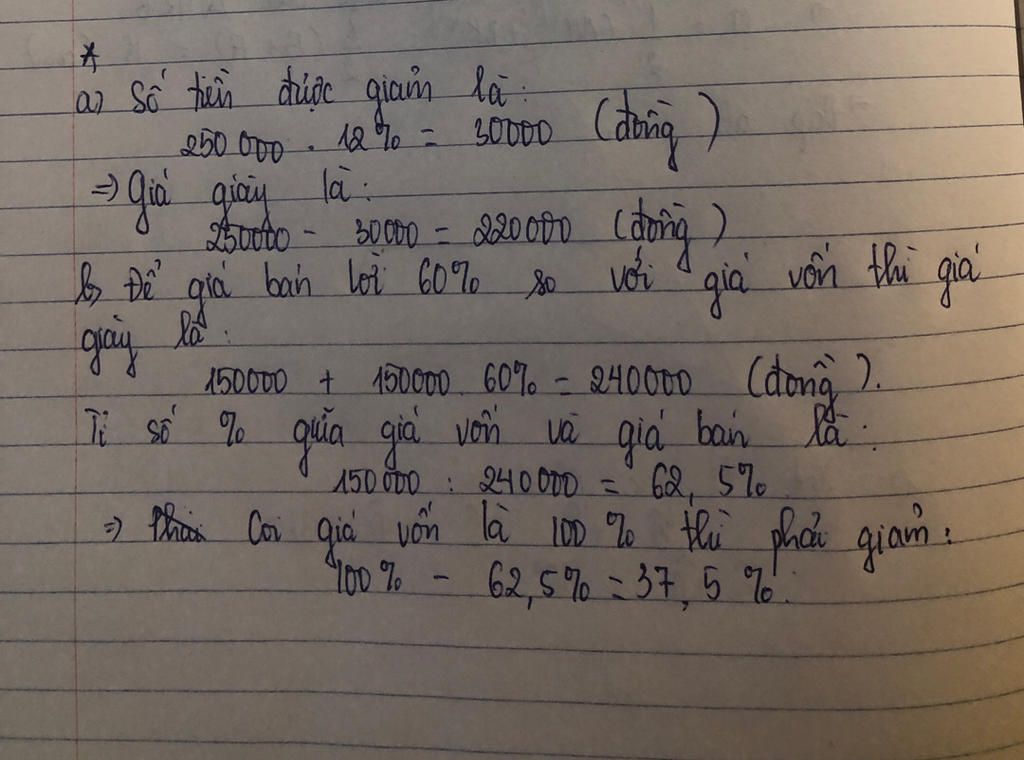 *
a) Số tiền được giảm là:
250 000 . 12% = 30000 (đồng)
=> Giá giày là:
250000 - 30000 = 220000 (đồng)
b, Để giá bán lời 60% so với giá vốn thì giá
giày là:
150000 + 150000 . 60% = 240000 (đồng).
Tỉ số % giữa giá vốn và giá bán là:
150000 : 240000 = 62,5%
=> Coi giá vốn là 100% thì phải giảm:
100% - 62,5% = 37,5%.